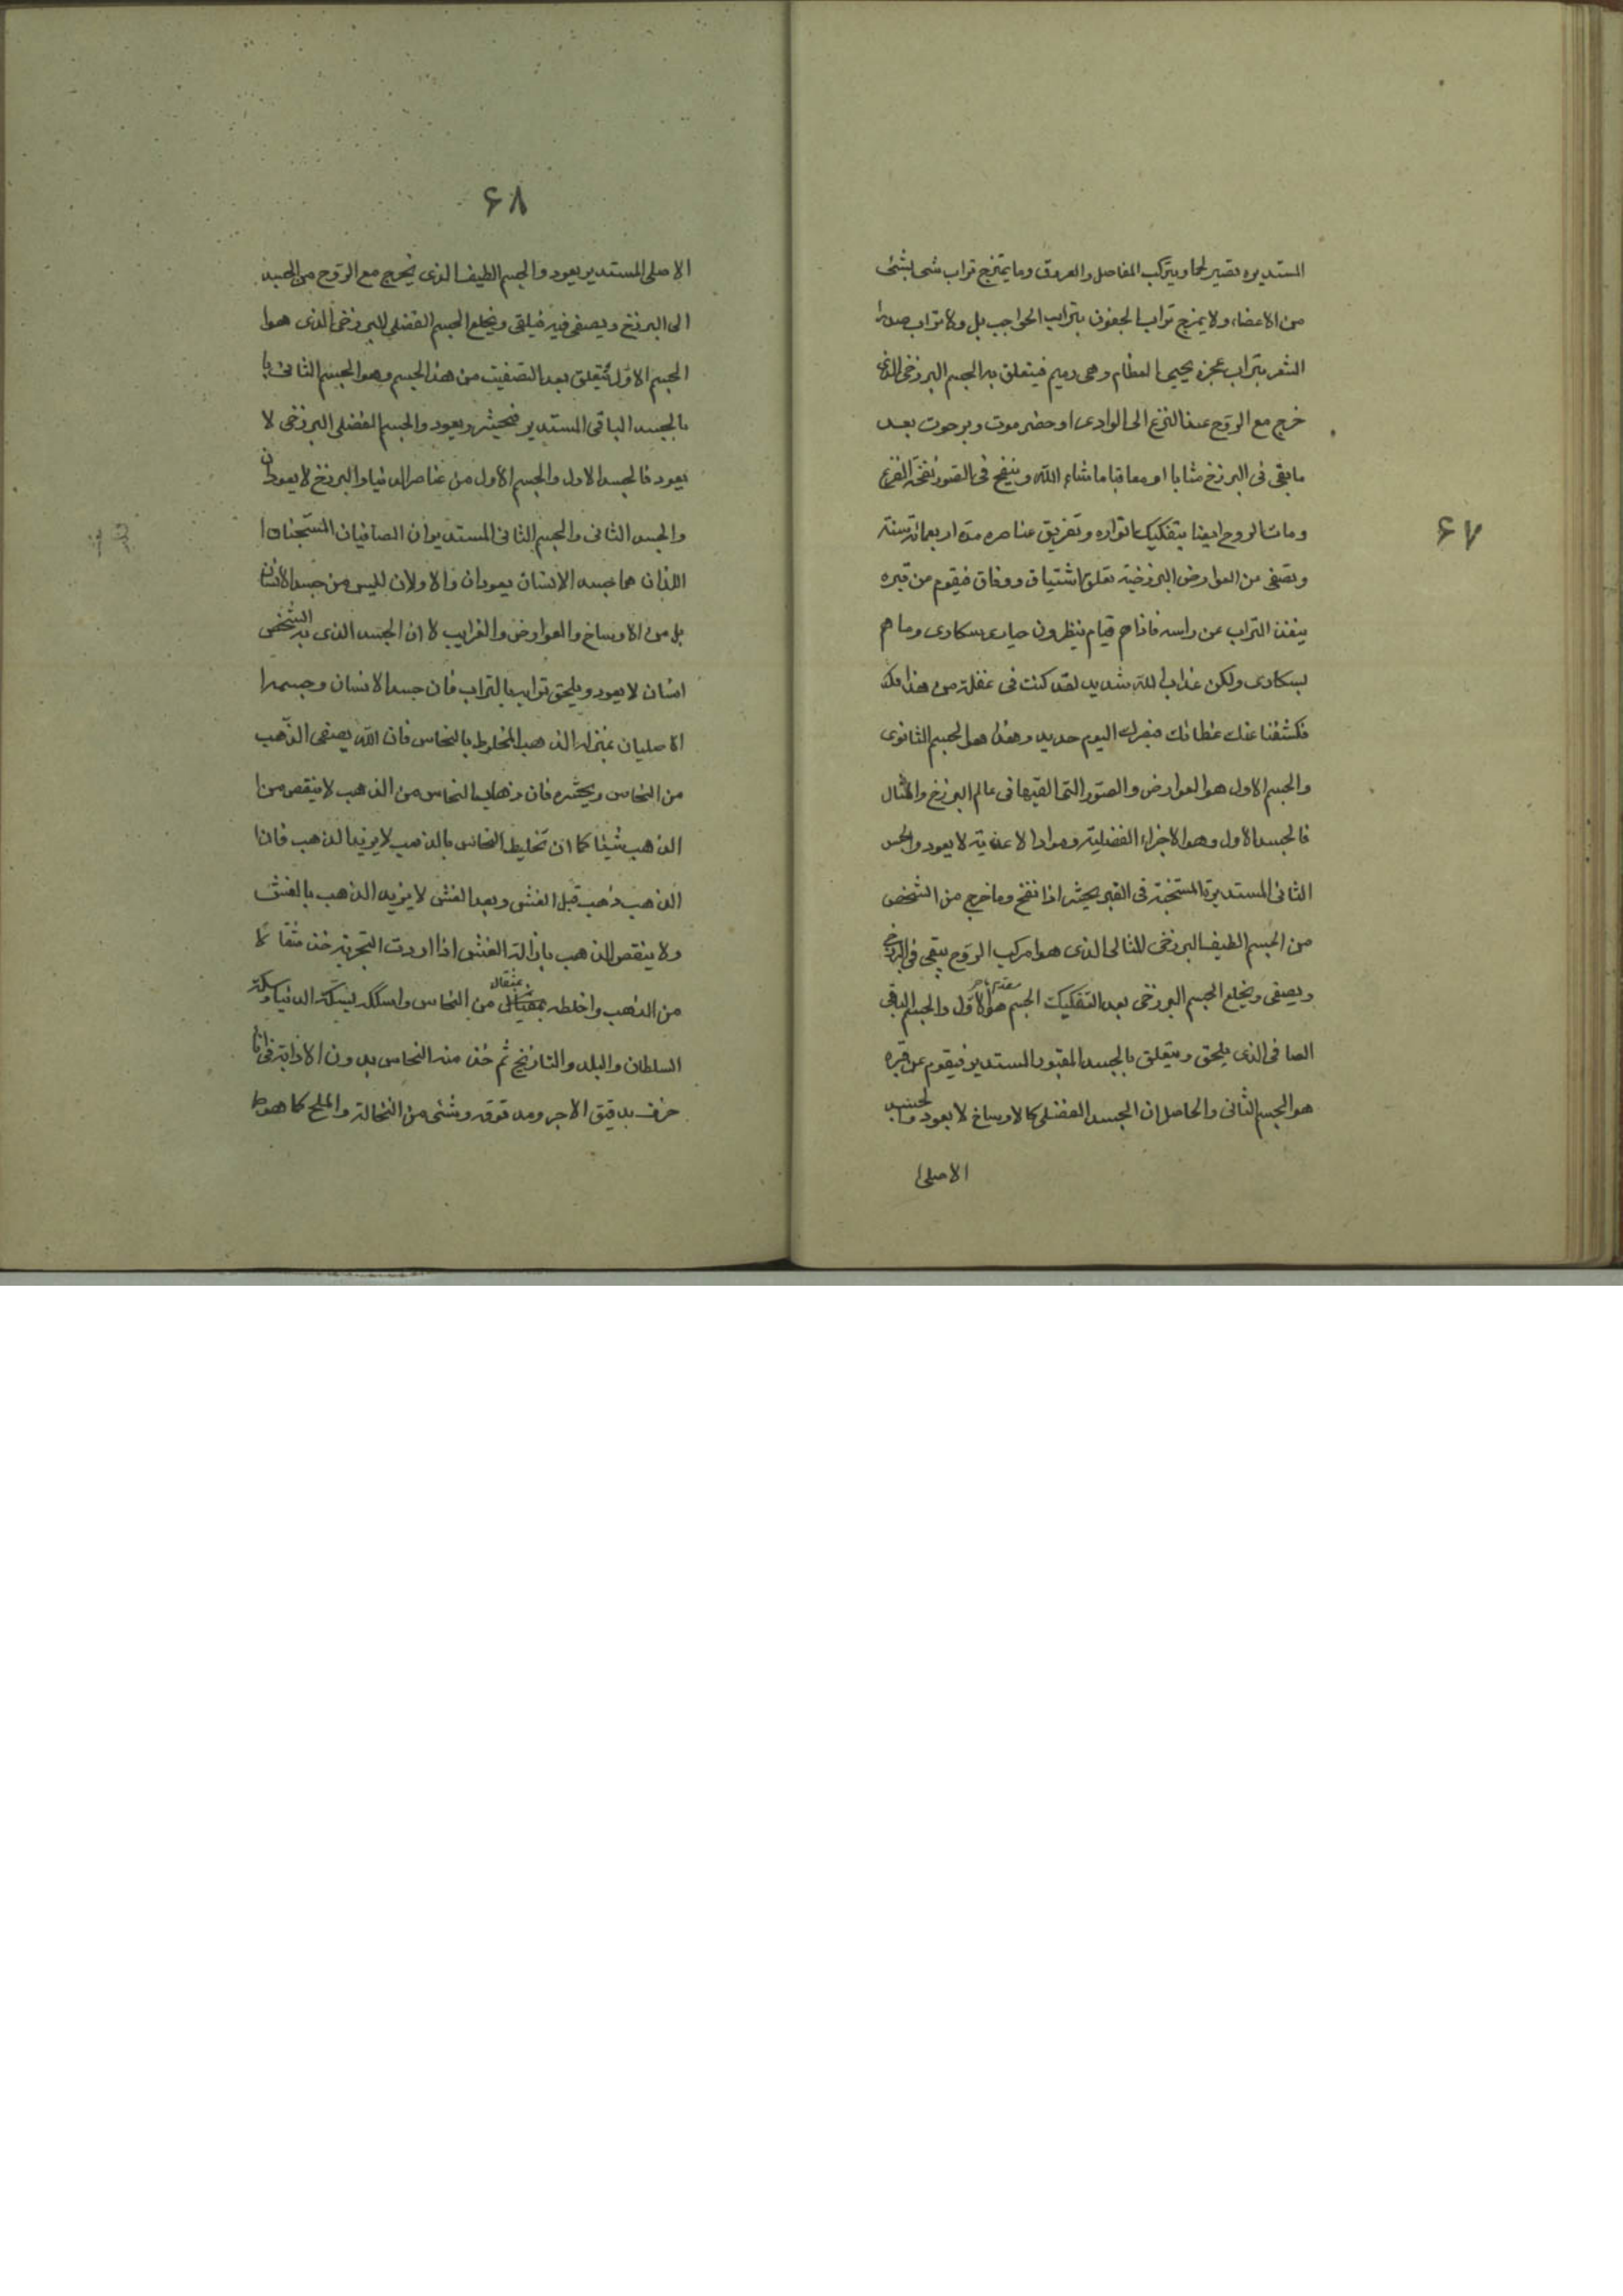 ۶۷
المستديره تصير لحما ويتركب المفاصل والعروق وما يمتزج تراب شی بشئ
من الاعضاء ولا يمزج تراب الجفون بتراب الحواجب بل ولا تراب
الشعر بتراب عجزه يحيی العظام وهی رميم فيتعلق به الجسم البرزخی الذی
خرج مع الروح عند النزع الی الوادی او حضرموت وبرهوت بعد
ما بقی فی البرزخ مثابا او معاقبا ما شاء الله وينفخ فی الصور نفخة الفزع
ومات الروح ايضا بتفكيك ادواره وتفريق عناصره مدة اربعمائة سنة
ويصفی من العوارض البرزخية تعلق اشتياق ووفاق فيقوم من قبره
ينفض التراب عن راسه فاذا هم قيام ينظرون حياری سكاری وما هم
بسكاری ولكن عذاب الله شديد لقد كنت فی غفلة من هذا بك
فكشفنا عنك غطائك فبصرك اليوم حديد وهذا هو الجسم الثانوی
والجسم الاول هو العوارض والصور التی القيها فی عالم البرزخ والمثال
فالجسد الاول وهو الاجزاء الفضلية ومواد الاغذية لا يعود والجس
الثانی المستديرة المستجنة فی القبر يحيی اذا نفخ وما خرج من الشخص
من الجسم الطيف البرزخی المثالی الذی هو مركب الروح يبقی فی البرزخ
ويصفی ويخلع الجسم البرزخی بعد التفكيك الجسم هو الاول والجسم الباقی
الصافی الذی يلحق ويتعلق بالجسد المقبور المستدير فيقوم عن قبره
هو الجسم الثانی والحاصل ان الجسد الفضلی كالاوساخ لا يعود والجسد
الاصلی
۶۸
الاصلی المستدير يعود والجسم الطيف الذی يخرج مع الروح من الجسد
الی البرزخ ويصفی فيه فيلقی ويخلع الجسم الفضلی البرزخی الذی هو
الجسم الاول يتعلق بعد التصفيت من هذا الجسم وهو الجسم الثانی با
بالجسد الباقی المستدير فيحشر ويعود والجسم الفضلی البرزخی لا
يعود فالجسد الاول والجسم الاول من عناصر الدنيا والبرزخ لا يعودان
والجسد الثانی والجسم الثانی المستديران الصافيان المستجنان
اللذان هما جسد الانسان يعودان والاولان لليس من جسد الانسان
بل من الاوساخ والعوارض والغرايب لا ان الجسد الذی به الشخص
انسان لا يعود ويلحق ترابه بالتراب فان جسد الانسان وجسمه
الاصليان بمنزلة الذهب المخلوط بالنحاس فان الله يصفی الذهب
من النحاس ويحشره فان ذهاب النحاس من الذهب لا ينقص من
الذهب شيئا كما ان تخليط النحاس بالذهب لا يزيد الذهب فان
الذهب ذهب قبل الغش وبعد الغش لا يزيد الذهب بالغش
ولا ينقص الذهب بازالة الغش اذا اردت التجربة خذ مثقالا
من الذهب واخلطه بمثقال من النحاس واسككه بسكة الدنيا وسكة
السلطان والبلد والتاريخ ثم خذ منه النحاس بدون الاذابة فی اناء
خزف بدقيق الاجر ومدقوقه وشئی من النخالة والملح كما هو